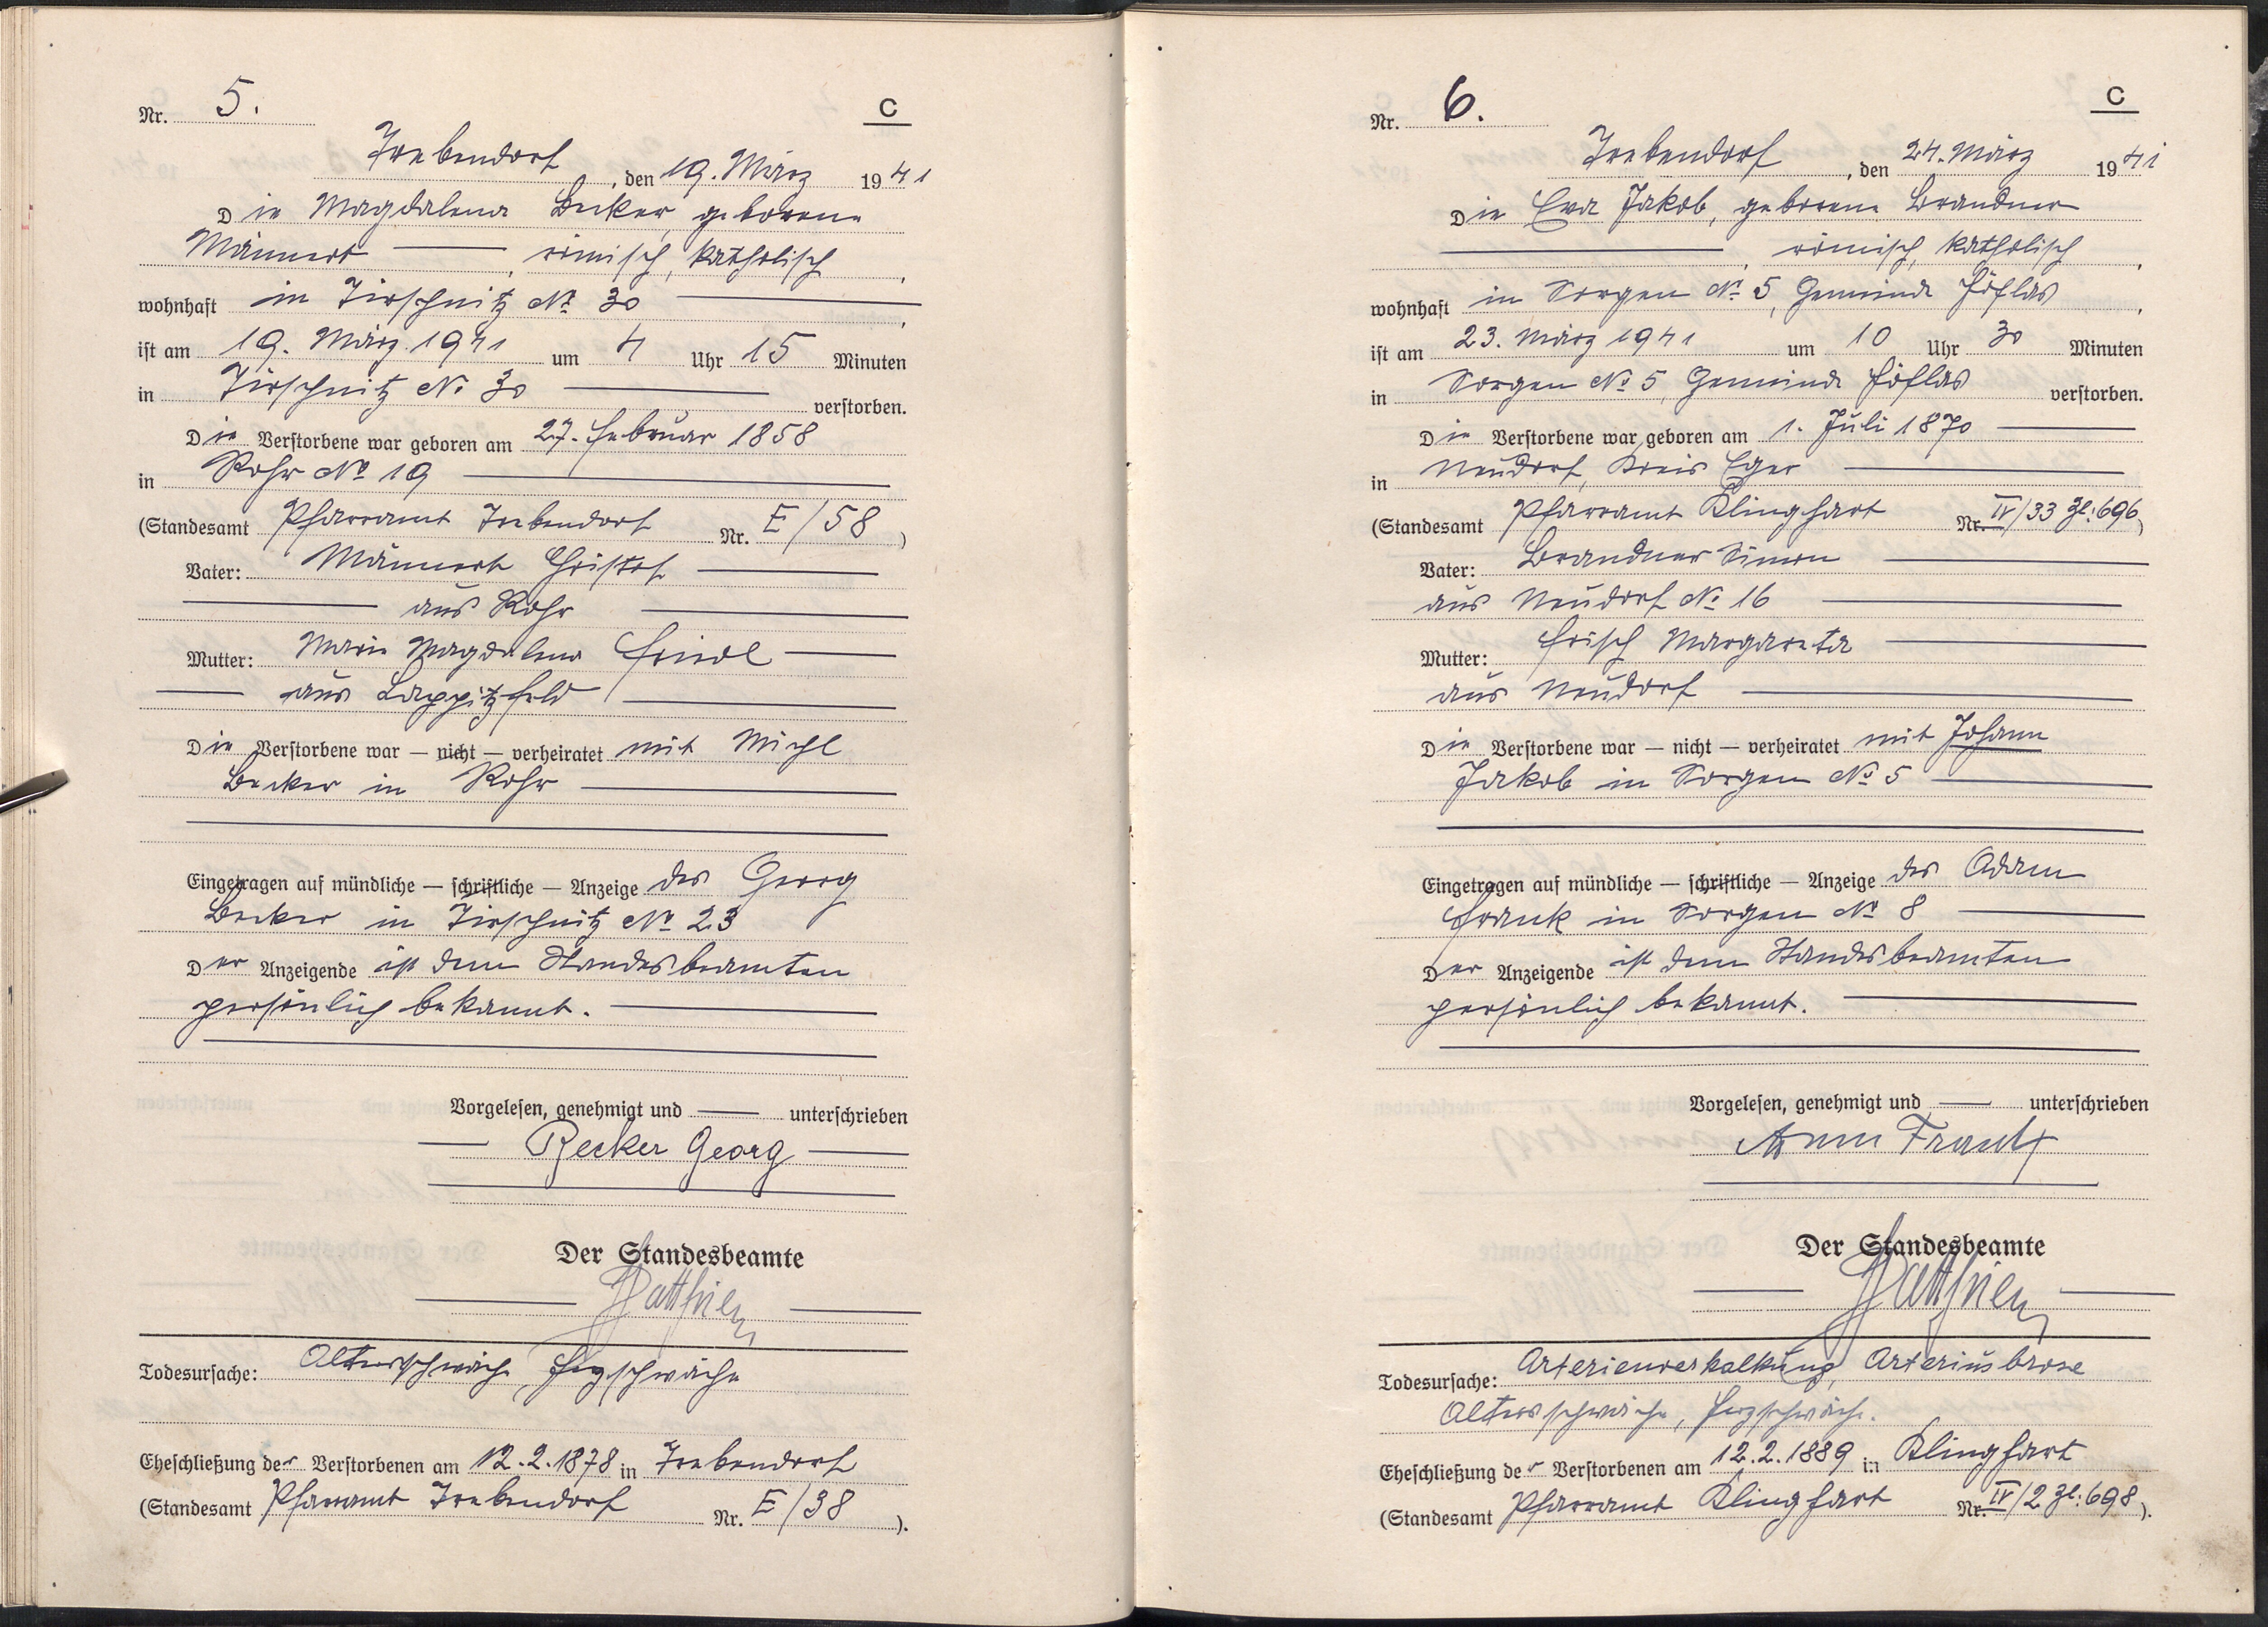 Nr. 5.
C
Trebendorf, den 19. März 1941
Die Magdalena Becker, geborene
Männert, römisch, katholisch,
wohnhaft in Tirschnitz No 30,
ist am 19. März 1941 um 4 Uhr 15 Minuten
in Tirschnitz No 30 verstorben.
Die Verstorbene war geboren am 27. Februar 1858
in Rohr No 19
(Standesamt Pfarramt Trebendorf Nr. E/58)
Vater: Männert Christof
aus Rohr
Mutter: Marie Magdalena Friedl
aus Lappitzfeld
Die Verstorbene war — nicht — verheiratet mit Michl
Becker in Rohr
Eingetragen auf mündliche — schriftliche — Anzeige des Georg
Becker in Tirschnitz No 23
Der Anzeigende ist dem Standesbeamten
persönlich bekannt.
Vorgelesen, genehmigt und unterschrieben
Becker Georg
Der Standesbeamte
Todesursache: Altersschwäche, Herzschwäche
Eheschließung der Verstorbenen am 12.2.1878 in Trebendorf
(Standesamt Pfarramt Trebendorf Nr. E/38).
Nr. 6.
C
Trebendorf, den 24. März 1941
Die Eva Jakob, geborene Brandner
, römisch, katholisch,
wohnhaft in Sorgen No 5, Gemeinde Höflas,
ist am 23. März 1941 um 10 Uhr 30 Minuten
in Sorgen No 5, Gemeinde Höflas verstorben.
Die Verstorbene war geboren am 1. Juli 1870
in Neudorf, Kreis Eger
(Standesamt Pfarramt Klinghart Nr. IV/33 Zl: 696)
Vater: Brandner Simon
aus Neudorf No 16
Mutter: Frisch Margareta
aus Neudorf
Die Verstorbene war — nicht — verheiratet mit Johann
Jakob in Sorgen No 5
Eingetragen auf mündliche — schriftliche — Anzeige des Adam
Frank in Sorgen No 8
Der Anzeigende ist dem Standesbeamten
persönlich bekannt.
Vorgelesen, genehmigt und unterschrieben
Der Standesbeamte
Todesursache: Arterienverkalkung,
Altersschwäche, Herzschwäche.
Eheschließung der Verstorbenen am 12.2.1889 in Klinghart
(Standesamt Pfarramt Klinghart Nr. IV/2 Zl: 698).